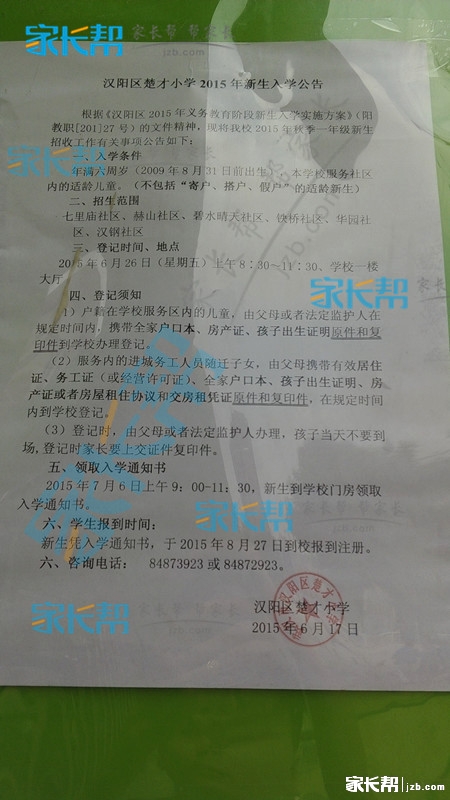 家长帮 家长帮 帮家长
jzb.com
汉阳区楚才小学2015年新生入学公告
根据《汉阳区2015年义务教育阶段新生入学实施方案》（阳
教职[201]27号）的文件精神，现将我校2015年秋季一年级新生
招收工作有关事项公告如下：
一、入学条件
年满六周岁（2009年8月31日前出生），本学校服务社区
内的适龄儿童。（不包括“寄户、搭户、假户”的适龄新生）
二、招生范围
七里庙社区、赫山社区、碧水晴天社区、铁桥社区、华园社
区、汉钢社区
三、登记时间、地点
2015年6月26日（星期五）上午8：30~11：30、学校一楼
大厅
四、登记须知
（1）户籍在学校服务区内的儿童，由父母或者法定监护人在
规定时间内，携带全家户口本、房产证、孩子出生证明原件和复
印件到学校办理登记。
（2）服务内的进城务工人员随迁子女，由父母携带有效居住
证、务工证（或经营许可证）、全家户口本、孩子出生证明、房
产证或者房屋租住协议和交房租凭证原件和复印件，在规定时间
内到学校登记。
（3）登记时，由父母或者法定监护人办理，孩子当天不要到
场，登记时家长要上交证件复印件。
五、领取入学通知书
2015年7月6日上午9：00-11：30，新生到学校门房领取
入学通知书。
六、学生报到时间：
新生凭入学通知书，于2015年8月27日到校报到注册。
六、咨询电话： 84873923或84872923。
汉阳区楚才小学
2015年6月17日
家长帮
家长帮
家长帮
家长帮
家长帮 jzb.com